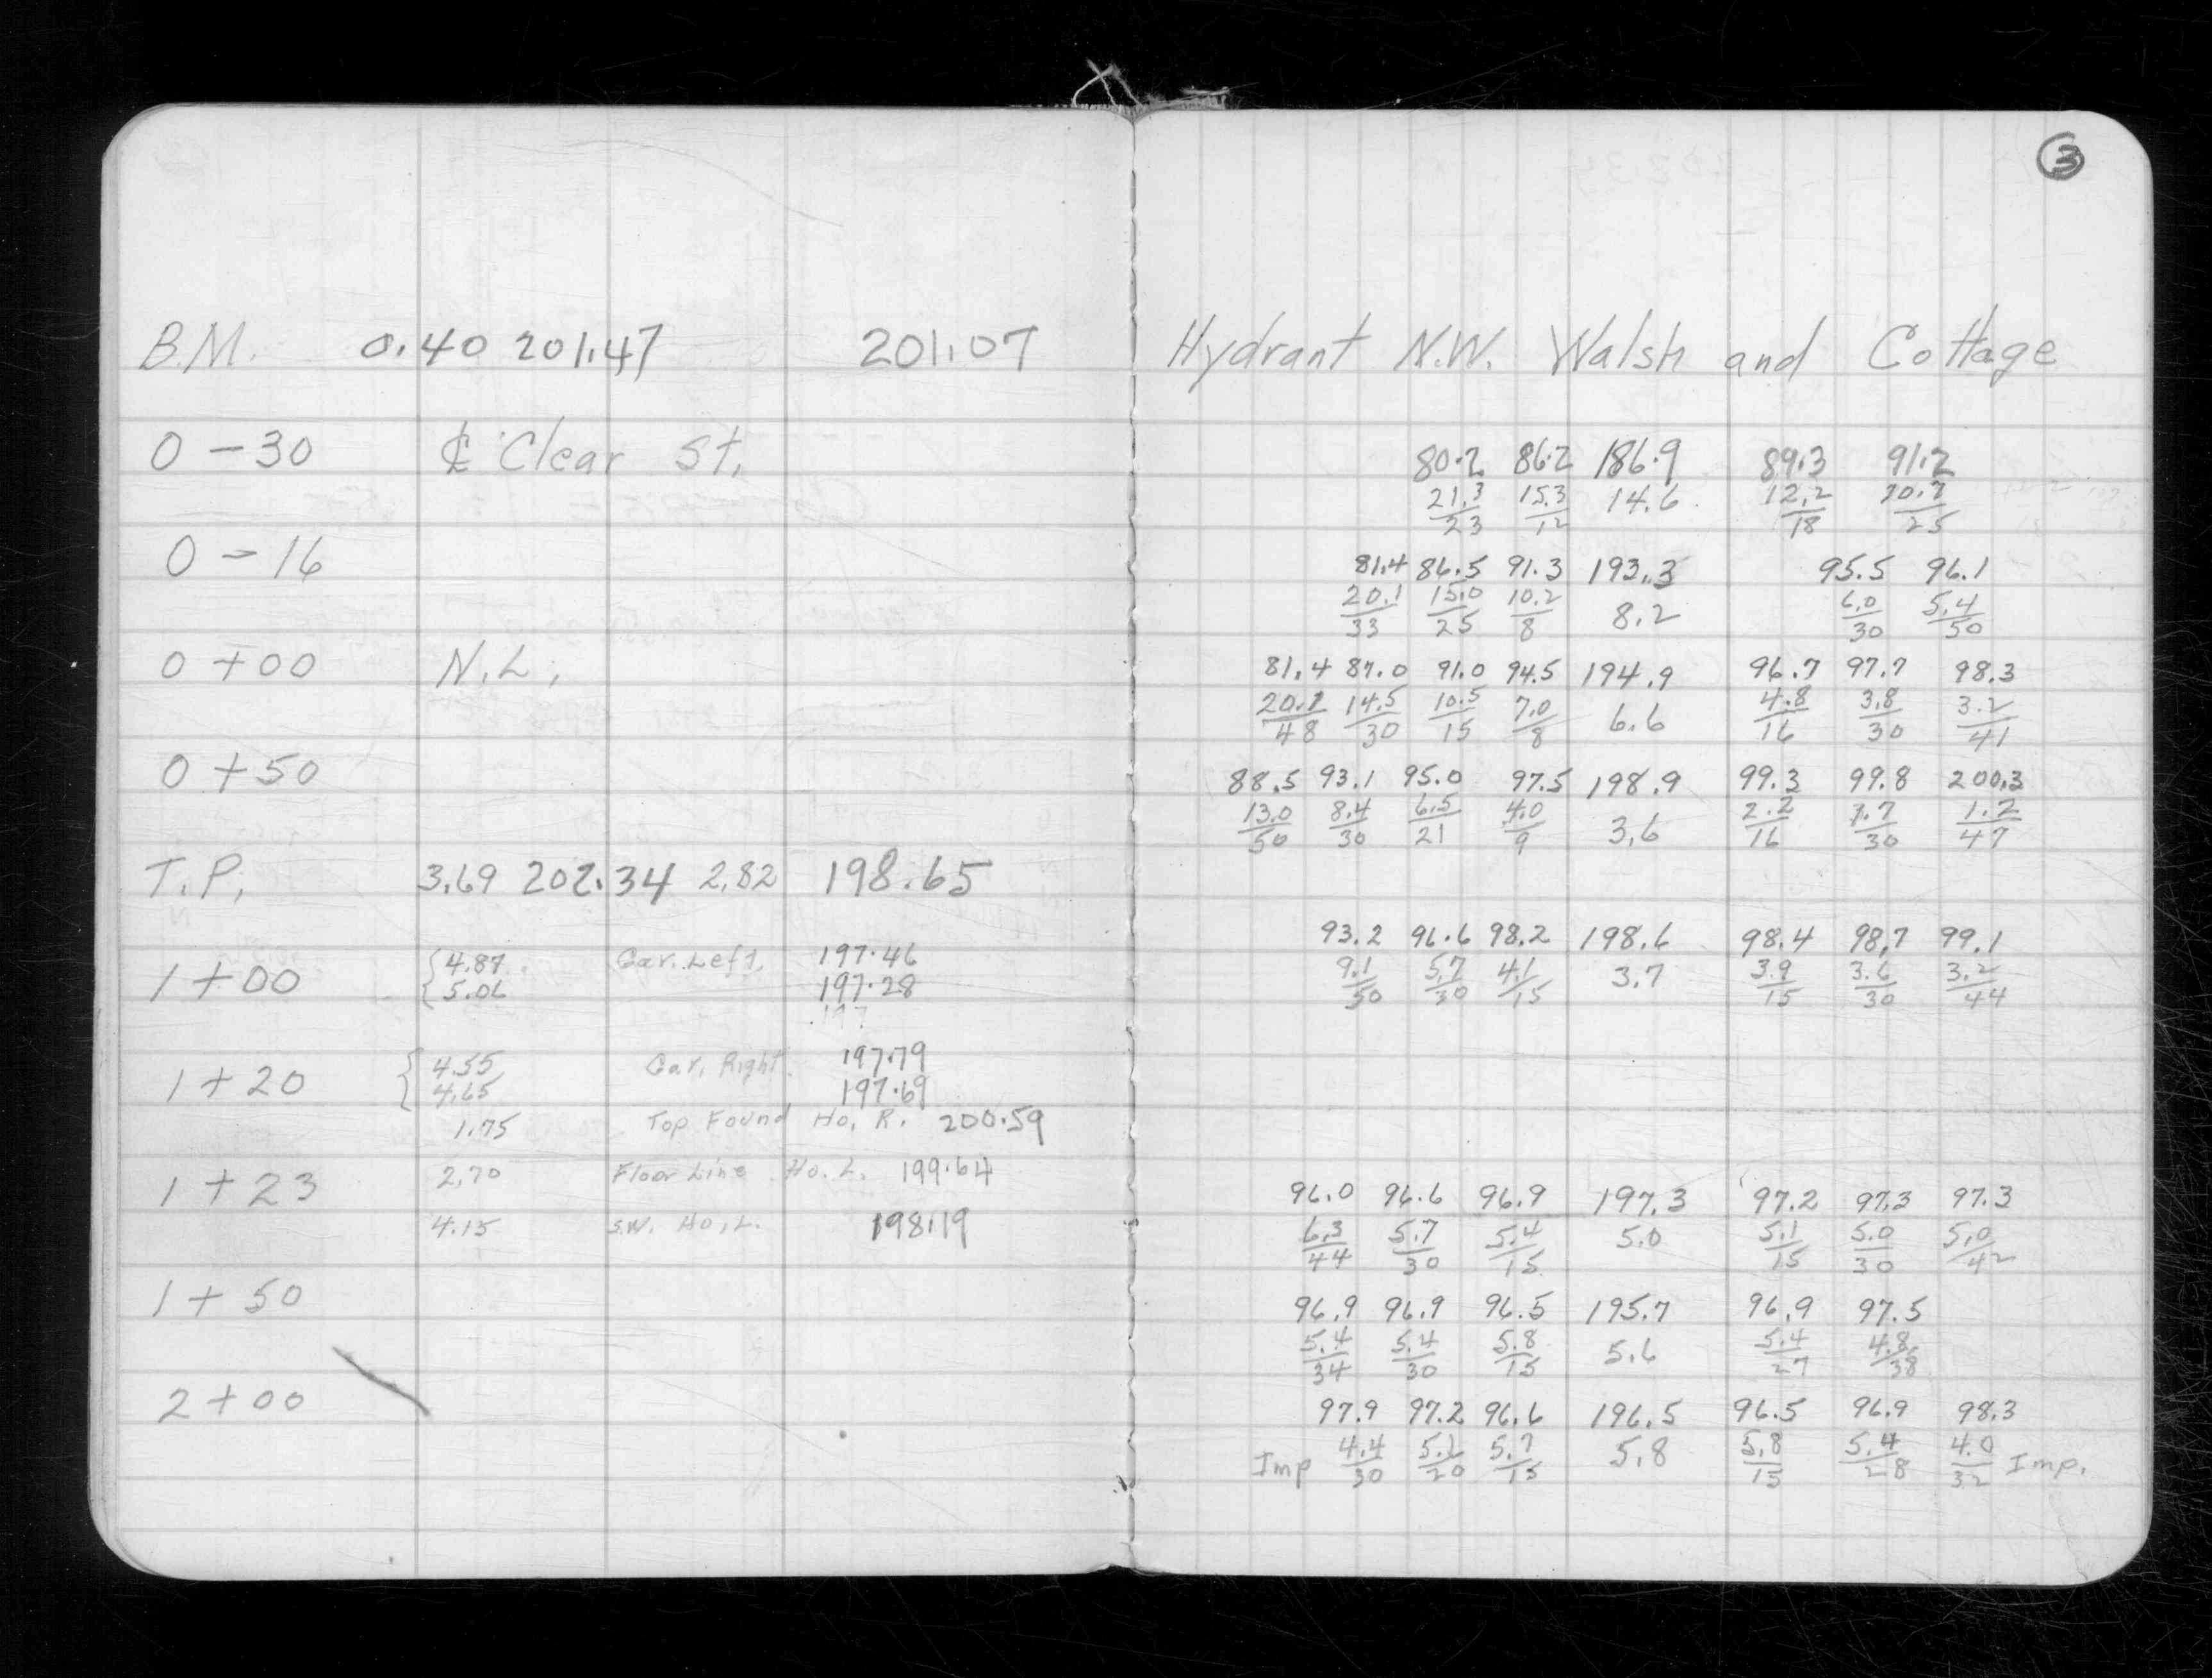 3
B.M. 0.40 201.47 201.07 Hydrant N.W. Walsh and Cottage
0 - 30 ℄ Clear St. 80.2 86.2 186.9 89.3 91.2
21.3/23 15.3/12 14.6 12.2/18 10.3/25
0 - 16 81.4 86.5 91.3 193.3 95.5 96.1
20.1/33 15.0/25 10.2/8 8.2 6.0/30 5.4/50
0 + 00 N.L. 81.4 87.0 91.0 94.5 194.9 96.7 97.7 98.3
20.1/48 14.5/30 10.5/15 7.0/8 6.6 4.8/16 3.8/30 3.2/41
0 + 50 88.5 93.1 95.0 97.5 198.9 99.3 99.8 200.3
13.0/50 8.4/30 6.5/21 4.0/9 3.6 2.2/16 1.7/30 1.2/47
T.P. 3.69 202.34 2.82 198.65
93.2 96.6 98.2 198.6 98.4 98.7 99.1
1 + 00 { 4.87 Gar. Left. 197.46 9.1/50 5.7/30 4.1/15 3.7 3.9/15 3.6/30 3.2/44
{ 5.06 197.28
197
1 + 20 { 4.55 Gar. Right. 197.79
4.65 197.69
1.75 Top Found Ho. R. 200.59
1 + 23 2.70 Floor Line Ho. L. 199.64 96.0 96.6 96.9 197.3 97.2 97.3 97.3
4.15 S.W. Ho. L. 198.19 6.3/44 5.7/30 5.4/15 5.0 5.1/15 5.0/30 5.0/42
1 + 50 96.9 96.9 96.5 195.7 96.9 97.5
5.4/34 5.4/30 5.8/15 5.6 5.4/27 4.8/38
2 + 00 97.9 97.2 96.6 196.5 96.5 96.9 98.3
Imp 4.4/30 5.1/20 5.7/15 5.8 5.8/15 5.4/28 4.0/32 Imp.